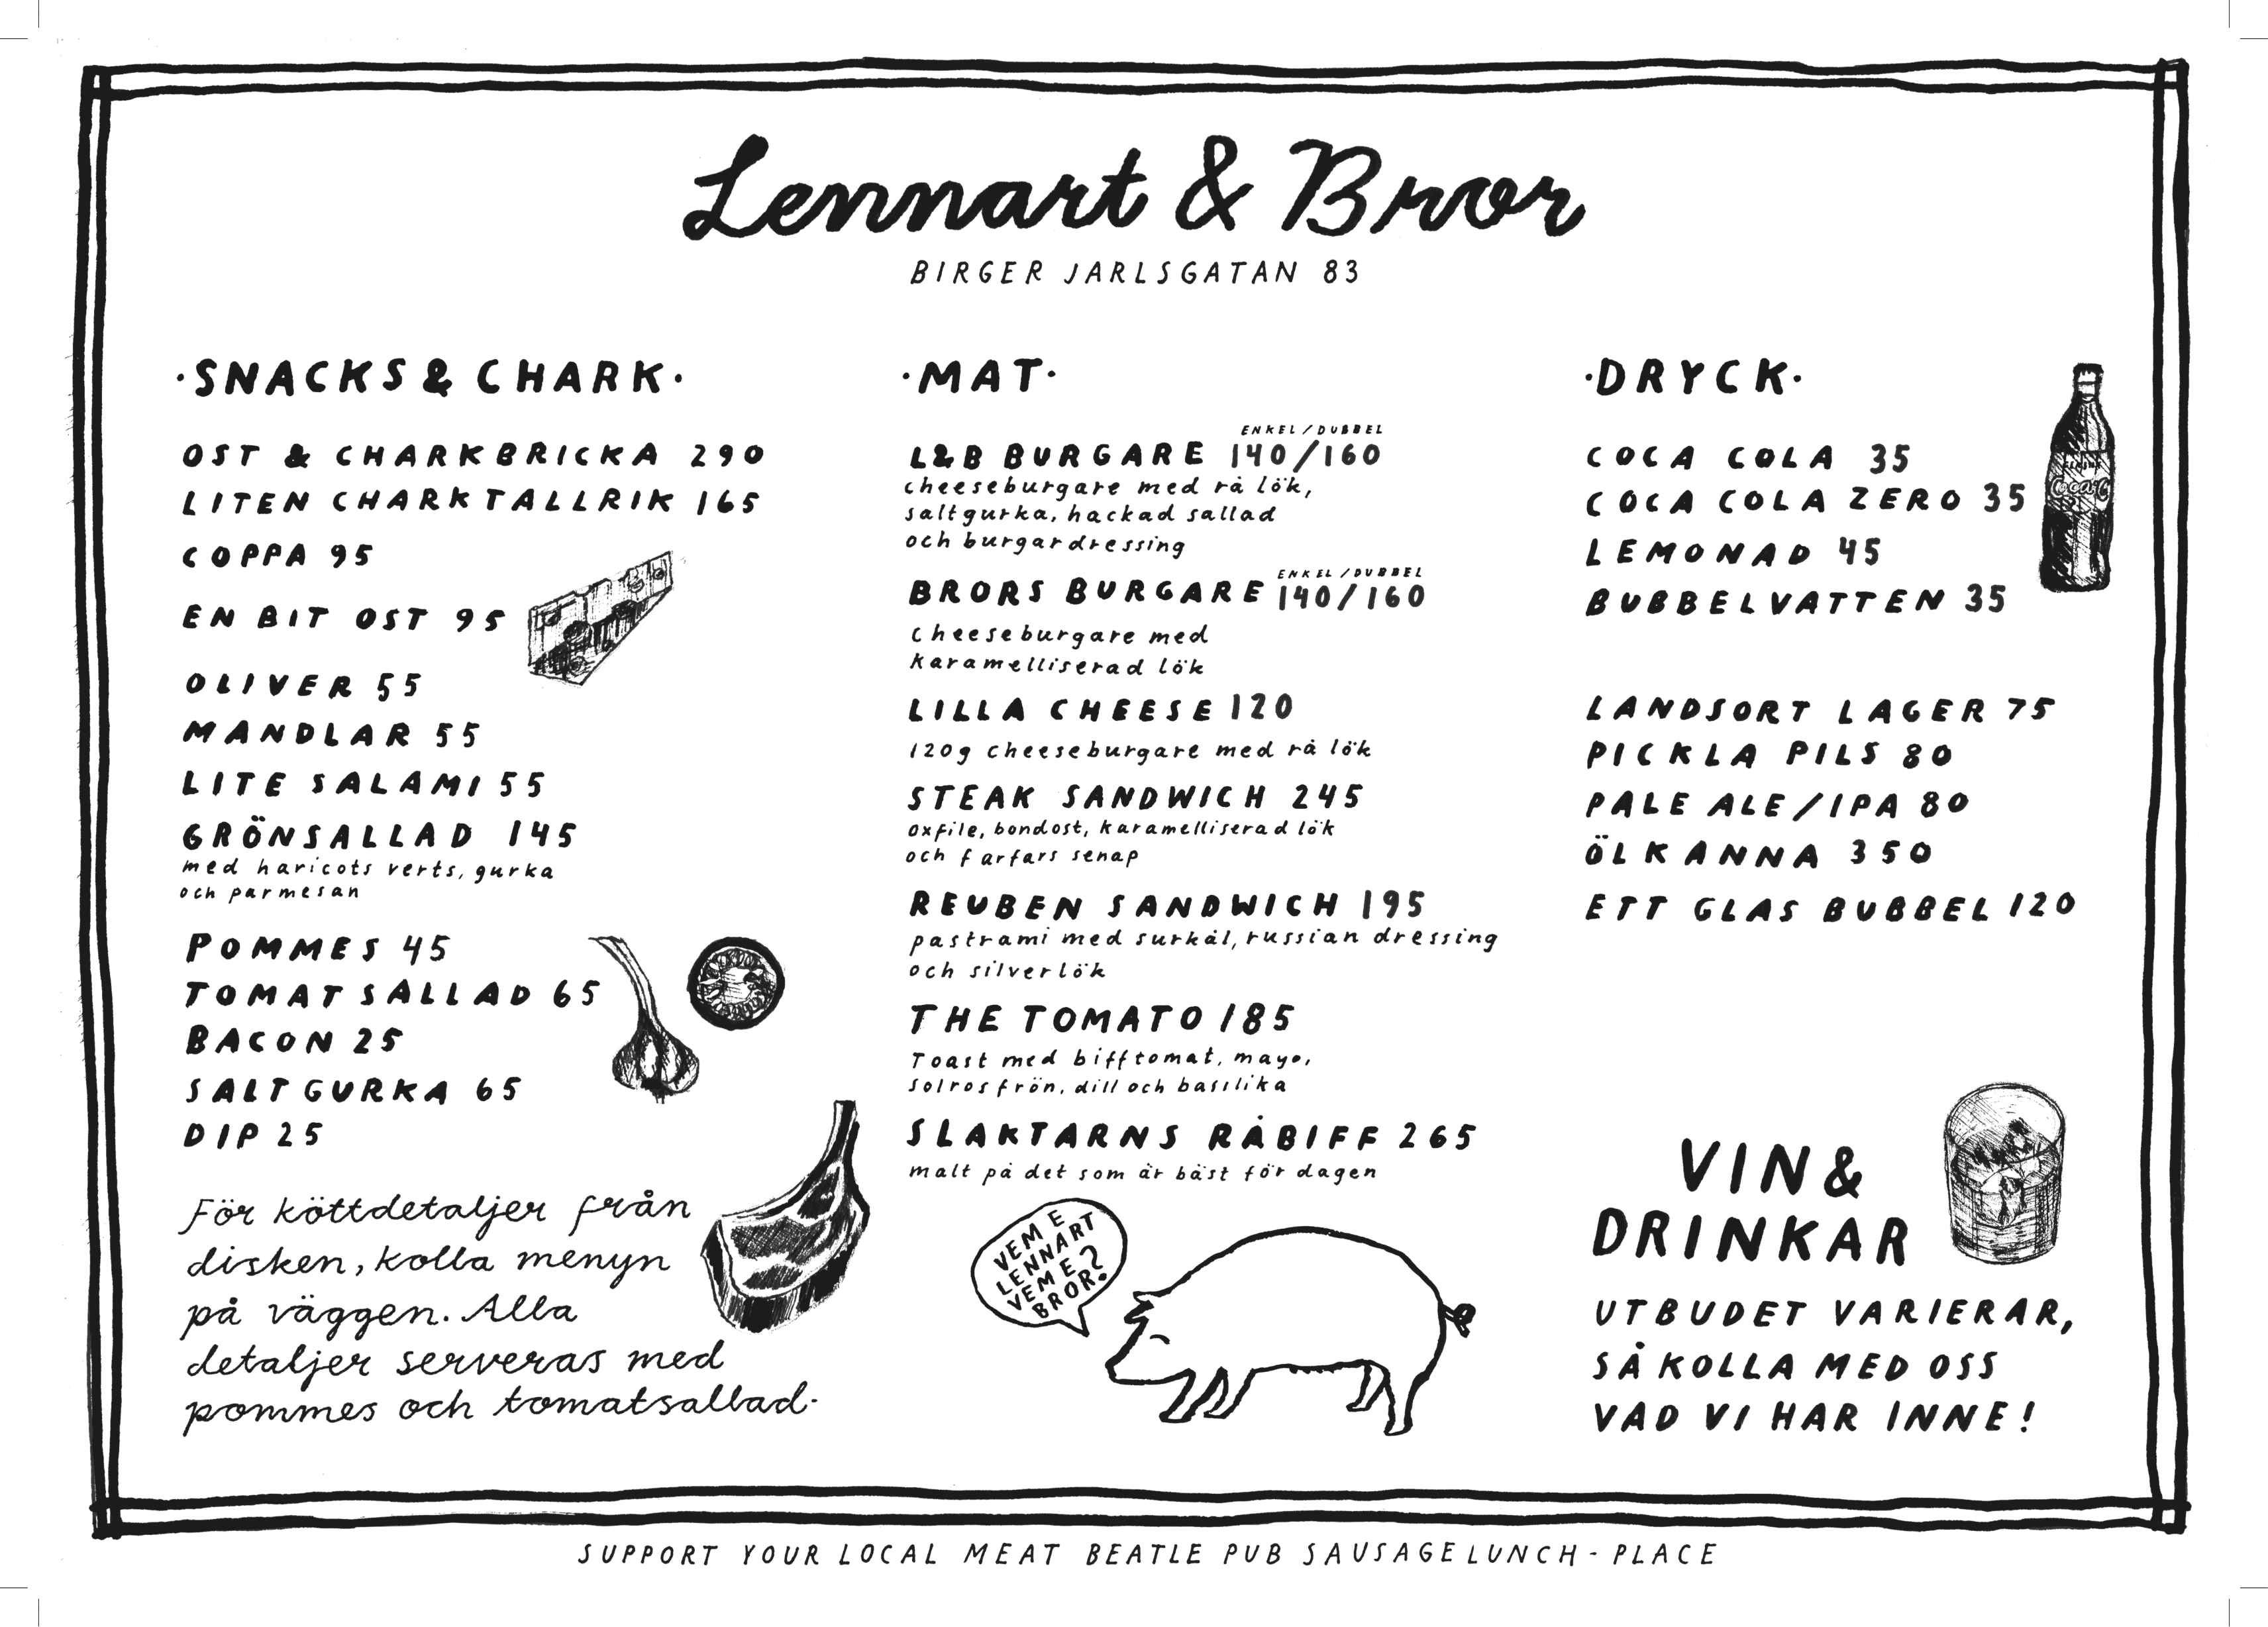 Lennart & Bror
BIRGER JARLSGATAN 83
·SNACKS & CHARK·
OST & CHARKBRICKA 290
LITEN CHARKTALLRIK 165
COPPA 95
EN BIT OST 95
OLIVER 55
MANDLAR 55
LITE SALAMI 55
GRÖNSALLAD 145
med haricots verts, gurka
och parmesan
POMMES 45
TOMATSALLAD 65
BACON 25
SALTGURKA 65
DIP 25
För köttdetaljer från
disken, kolla menyn
på väggen. Alla
detaljer serveras med
pommes och tomatsallad.
·MAT·
ENKEL/DUBBEL
L&B BURGARE 140/160
cheeseburgare med rå lök,
saltgurka, hackad sallad
och burgardressing
ENKEL/DUBBEL
BRORS BURGARE 140/160
cheeseburgare med
karamelliserad lök
LILLA CHEESE 120
120g cheeseburgare med rå lök
STEAK SANDWICH 245
oxfile, bondost, karamelliserad lök
och farfars senap
REUBEN SANDWICH 195
pastrami med surkål, russian dressing
och silverlök
THE TOMATO 185
Toast med bifftomat, mayo,
solrosfrön, dill och basilika
SLAKTARNS RÅBIFF 265
malt på det som är bäst för dagen
VEM E
LENNART
VEM E
BROR?
·DRYCK·
COCA COLA 35
COCA COLA ZERO 35
LEMONAD 45
BUBBELVATTEN 35
Coca-C
LANDSORT LAGER 75
PICKLA PILS 80
PALE ALE/IPA 80
ÖLKANNA 350
ETT GLAS BUBBEL 120
VIN &
DRINKAR
UTBUDET VARIERAR,
SÅ KOLLA MED OSS
VAD VI HAR INNE!
SUPPORT YOUR LOCAL MEAT BEATLE PUB SAUSAGE LUNCH-PLACE